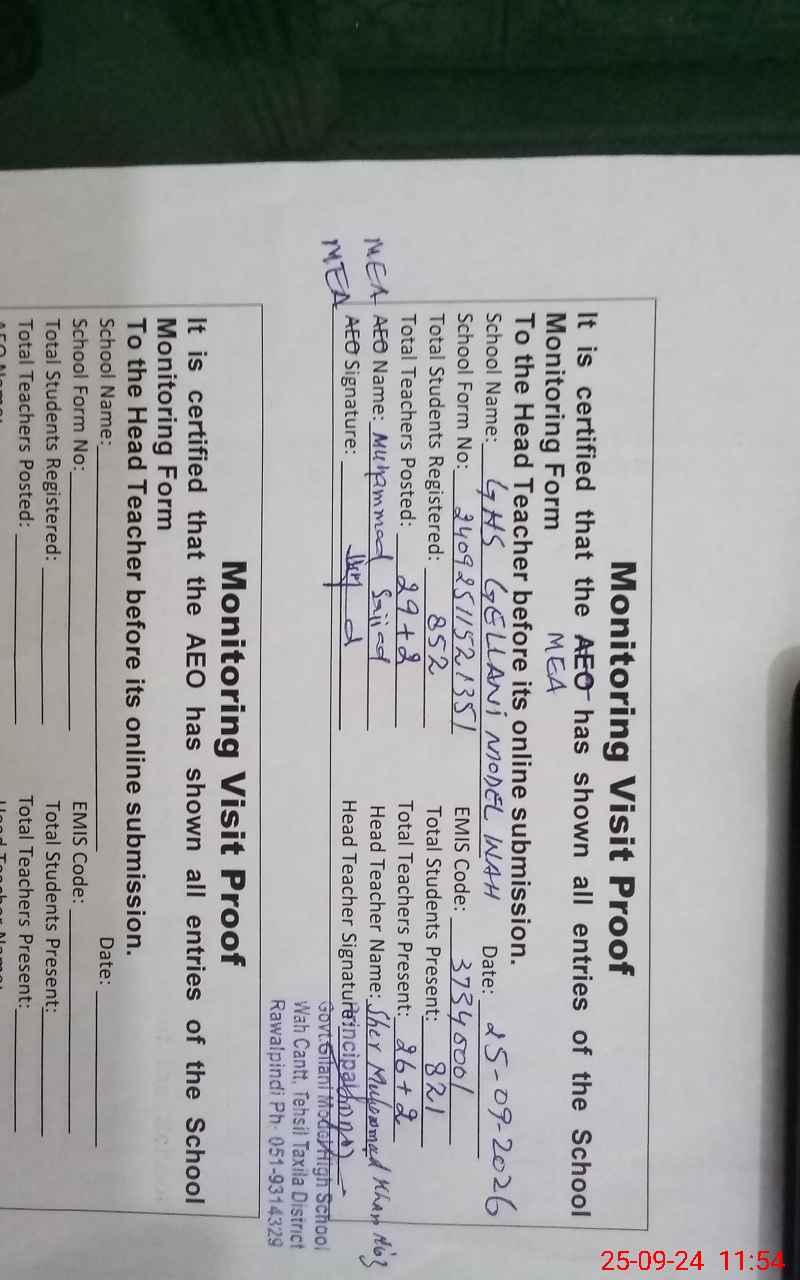 Monitoring Visit Proof
It is certified that the AEO has shown all entries of the School
MEA
Monitoring Form
To the Head Teacher before its online submission.
School Name: GHS GELLANI MODEL WAH Date: 25-09-2026
School Form No: 24092511521351 EMIS Code: 37340001
Total Students Registered: 852 Total Students Present: 821
Total Teachers Posted: 29+2 Total Teachers Present: 26+2
MEA AEO Name: Muhammad Sajjad Head Teacher Name: Sher Muhammad Khan
MEA AEO Signature: Head Teacher Signature:
Principal
Govt. Gilani Model High School
Wah Cantt, Tehsil Taxila District
Rawalpindi Ph: 051-9314329
Monitoring Visit Proof
It is certified that the AEO has shown all entries of the School
Monitoring Form
To the Head Teacher before its online submission.
School Name: Date:
School Form No: EMIS Code:
Total Students Registered: Total Students Present:
Total Teachers Posted: Total Teachers Present:
25-09-24 11:54